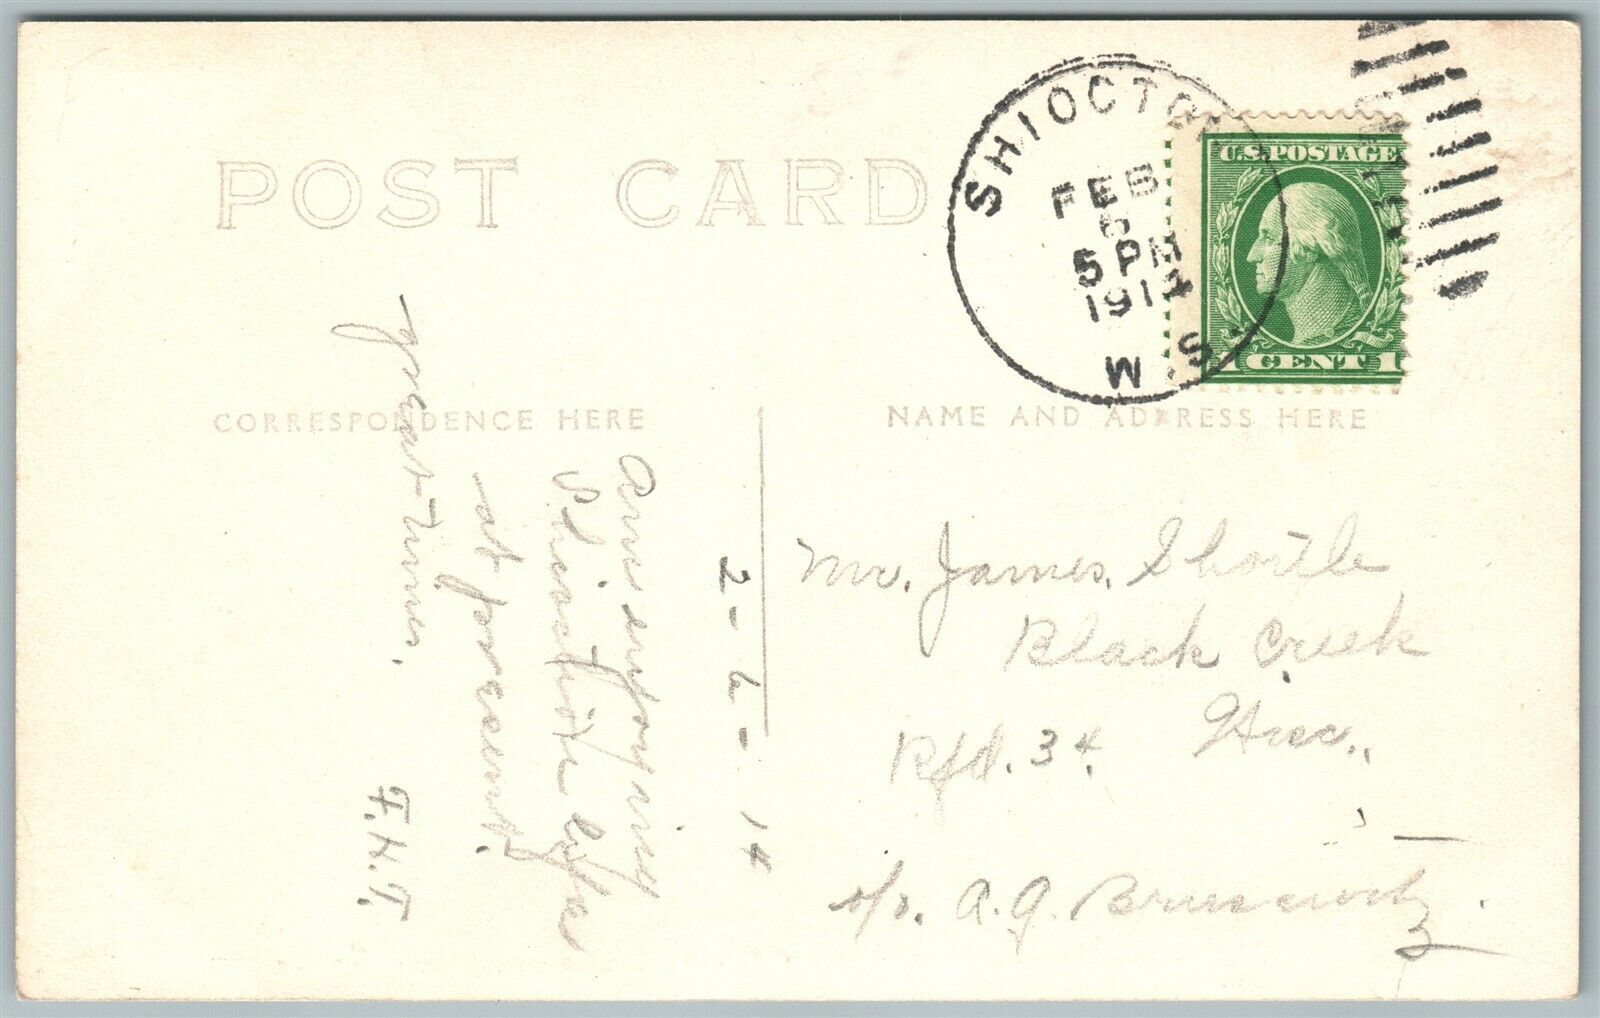 POST CARD
SHIOCTON
FEB
6
5 PM
1914
WIS.
U.S. POSTAGE
1 CENT 1
CORRESPONDENCE HERE
NAME AND ADDRESS HERE
2-6-14
Am enjoying
Shiocton life
at present.
great times.
F.H.T.
Mr. James Shortle
Black Creek
Rfd. 34. Wisc.
c/o. A.G.